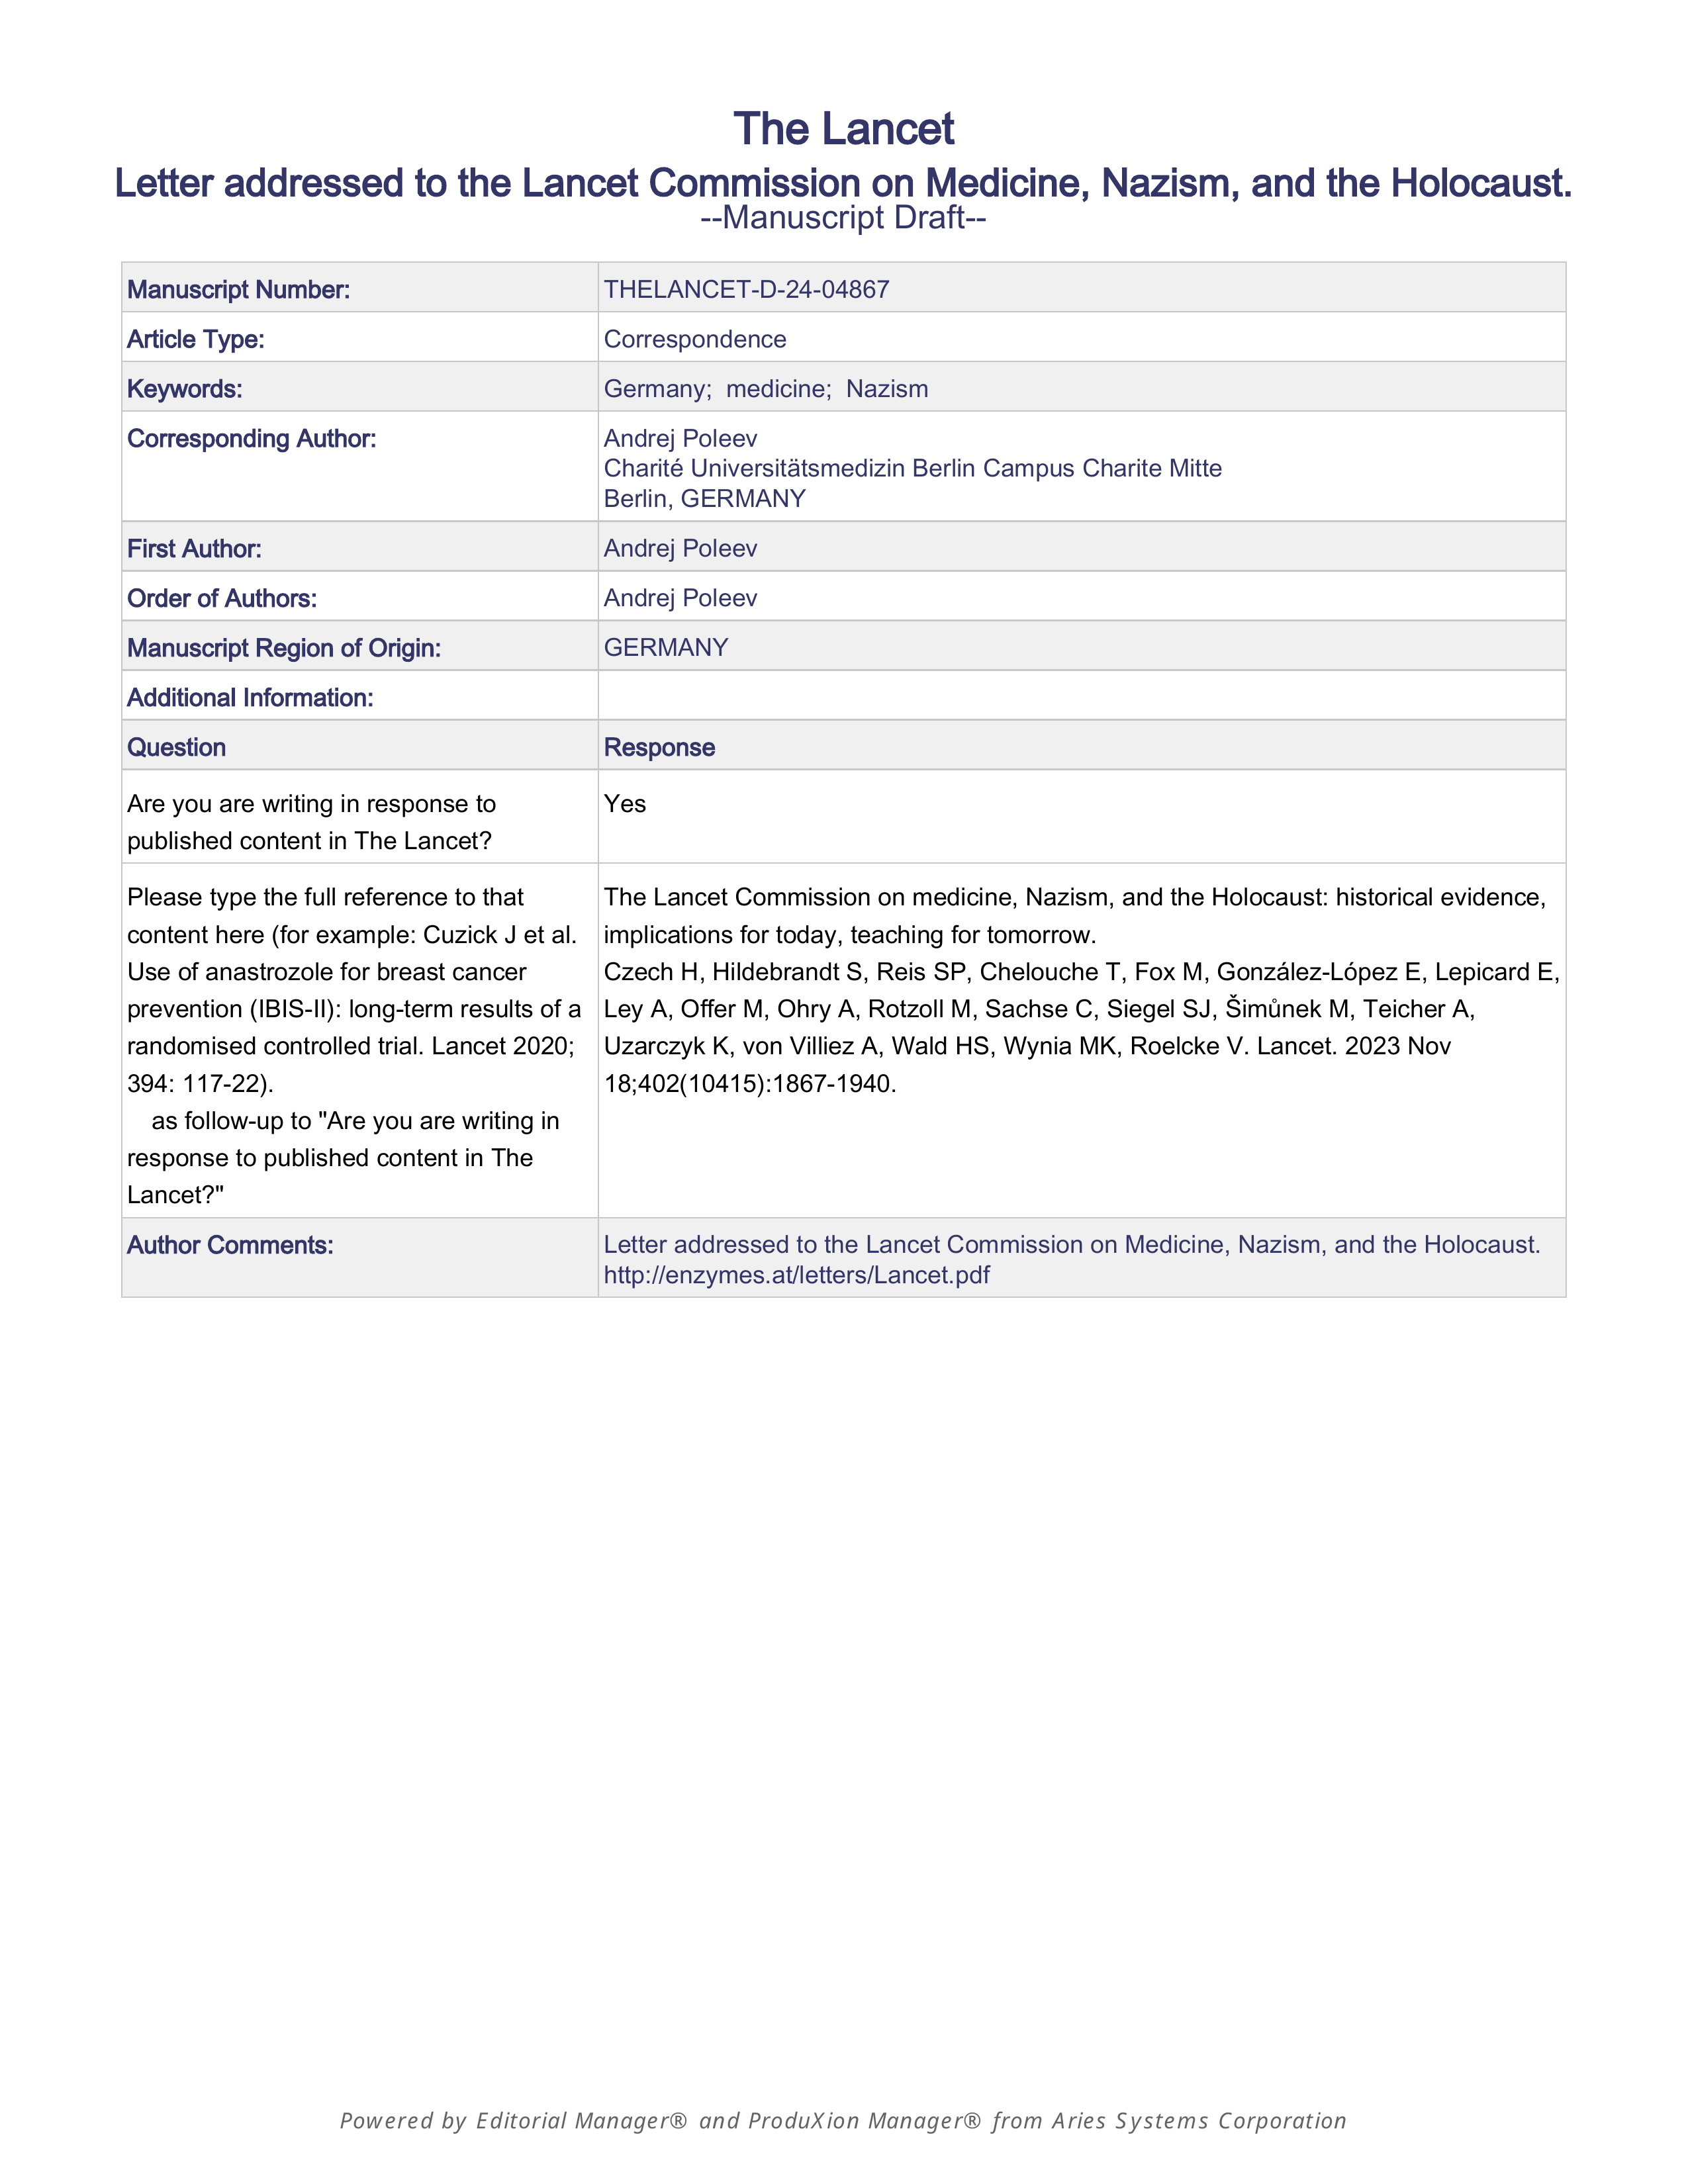 The Lancet
Letter addressed to the Lancet Commission on Medicine, Nazism, and the Holocaust.
--Manuscript Draft--
Manuscript Number:
THELANCET-D-24-04867
Article Type:
Correspondence
Keywords:
Germany;  medicine;  Nazism
Corresponding Author:
Andrej Poleev
Charité Universitätsmedizin Berlin Campus Charite Mitte
Berlin, GERMANY
First Author:
Andrej Poleev
Order of Authors:
Andrej Poleev
Manuscript Region of Origin:
GERMANY
Additional Information:
Question
Response
Are you are writing in response to
published content in The Lancet?
Yes
Please type the full reference to that
content here (for example: Cuzick J et al.
Use of anastrozole for breast cancer
prevention (IBIS-II): long-term results of a
randomised controlled trial. Lancet 2020;
394: 117-22).
as follow-up to "Are you are writing in
response to published content in The
Lancet?"
The Lancet Commission on medicine, Nazism, and the Holocaust: historical evidence,
implications for today, teaching for tomorrow.
Czech H, Hildebrandt S, Reis SP, Chelouche T, Fox M, González-López E, Lepicard E,
Ley A, Offer M, Ohry A, Rotzoll M, Sachse C, Siegel SJ, Šimůnek M, Teicher A,
Uzarczyk K, von Villiez A, Wald HS, Wynia MK, Roelcke V. Lancet. 2023 Nov
18;402(10415):1867-1940.
Author Comments:
Letter addressed to the Lancet Commission on Medicine, Nazism, and the Holocaust.
http://enzymes.at/letters/Lancet.pdf
Powered by Editorial Manager® and ProduXion Manager® from Aries Systems Corporation